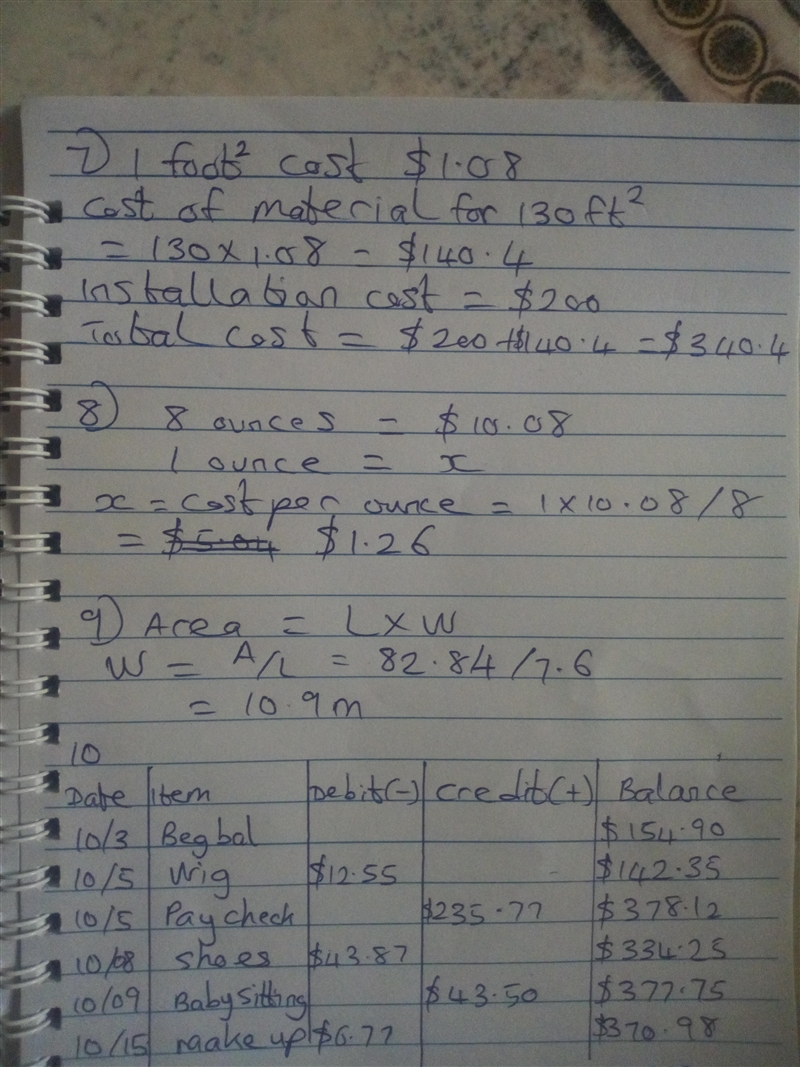 7) 1 foot² cost $1.08
Cost of material for 130ft²
= 130 x 1.08 = $140.4
Installation cost = $200
Total cost = $200 + $140.4 = $340.4
8) 8 ounces = $10.08
1 ounce = x
x = cost per ounce = 1 x 10.08 / 8
= $5.04 $1.26
9) Area = L x W
W = A/L = 82.84 / 7.6
= 10.9m
10
Date Item Debit(-) Credit(+) Balance
10/3 Beg bal $154.90
10/5 Wig $12.55 $142.35
10/5 Pay check $235.77 $378.12
10/08 shoes $43.87 $334.25
10/09 Babysitting $43.50 $377.75
10/15 make up $6.77 $370.98